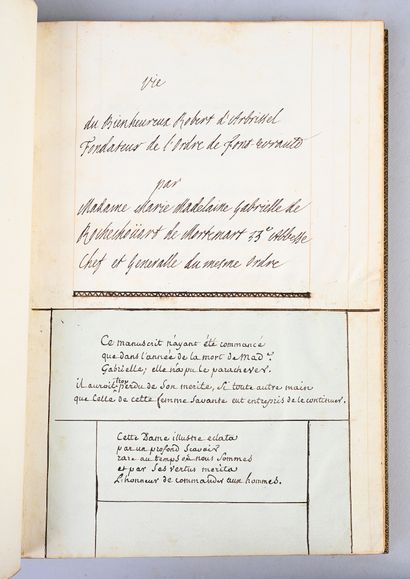 Vie
du Bienheureux Robert d'Arbrissel
Fondateur de l'Ordre de Font-Evrauld
par
Madame Marie Madelaine Gabrielle de
Rochechoüart de Mortemart 33e Abbesse
Chef et Generalle du mesme Ordre
Ce manuscrit n'ayant été commancé
que dans l'année de la mort de Made.
Gabrielle; elle n'a pu le parachever.
il auroit trop perdu de Son merite, Si toute autre main
que Celle de cette femme Savante eut entrepris de le continuer.
Cette Dame illustre eclata
par un profond Scavoir
rare au temps où nous Sommes
et par Ses vertus merita
L'honneur de commander aux hommes.